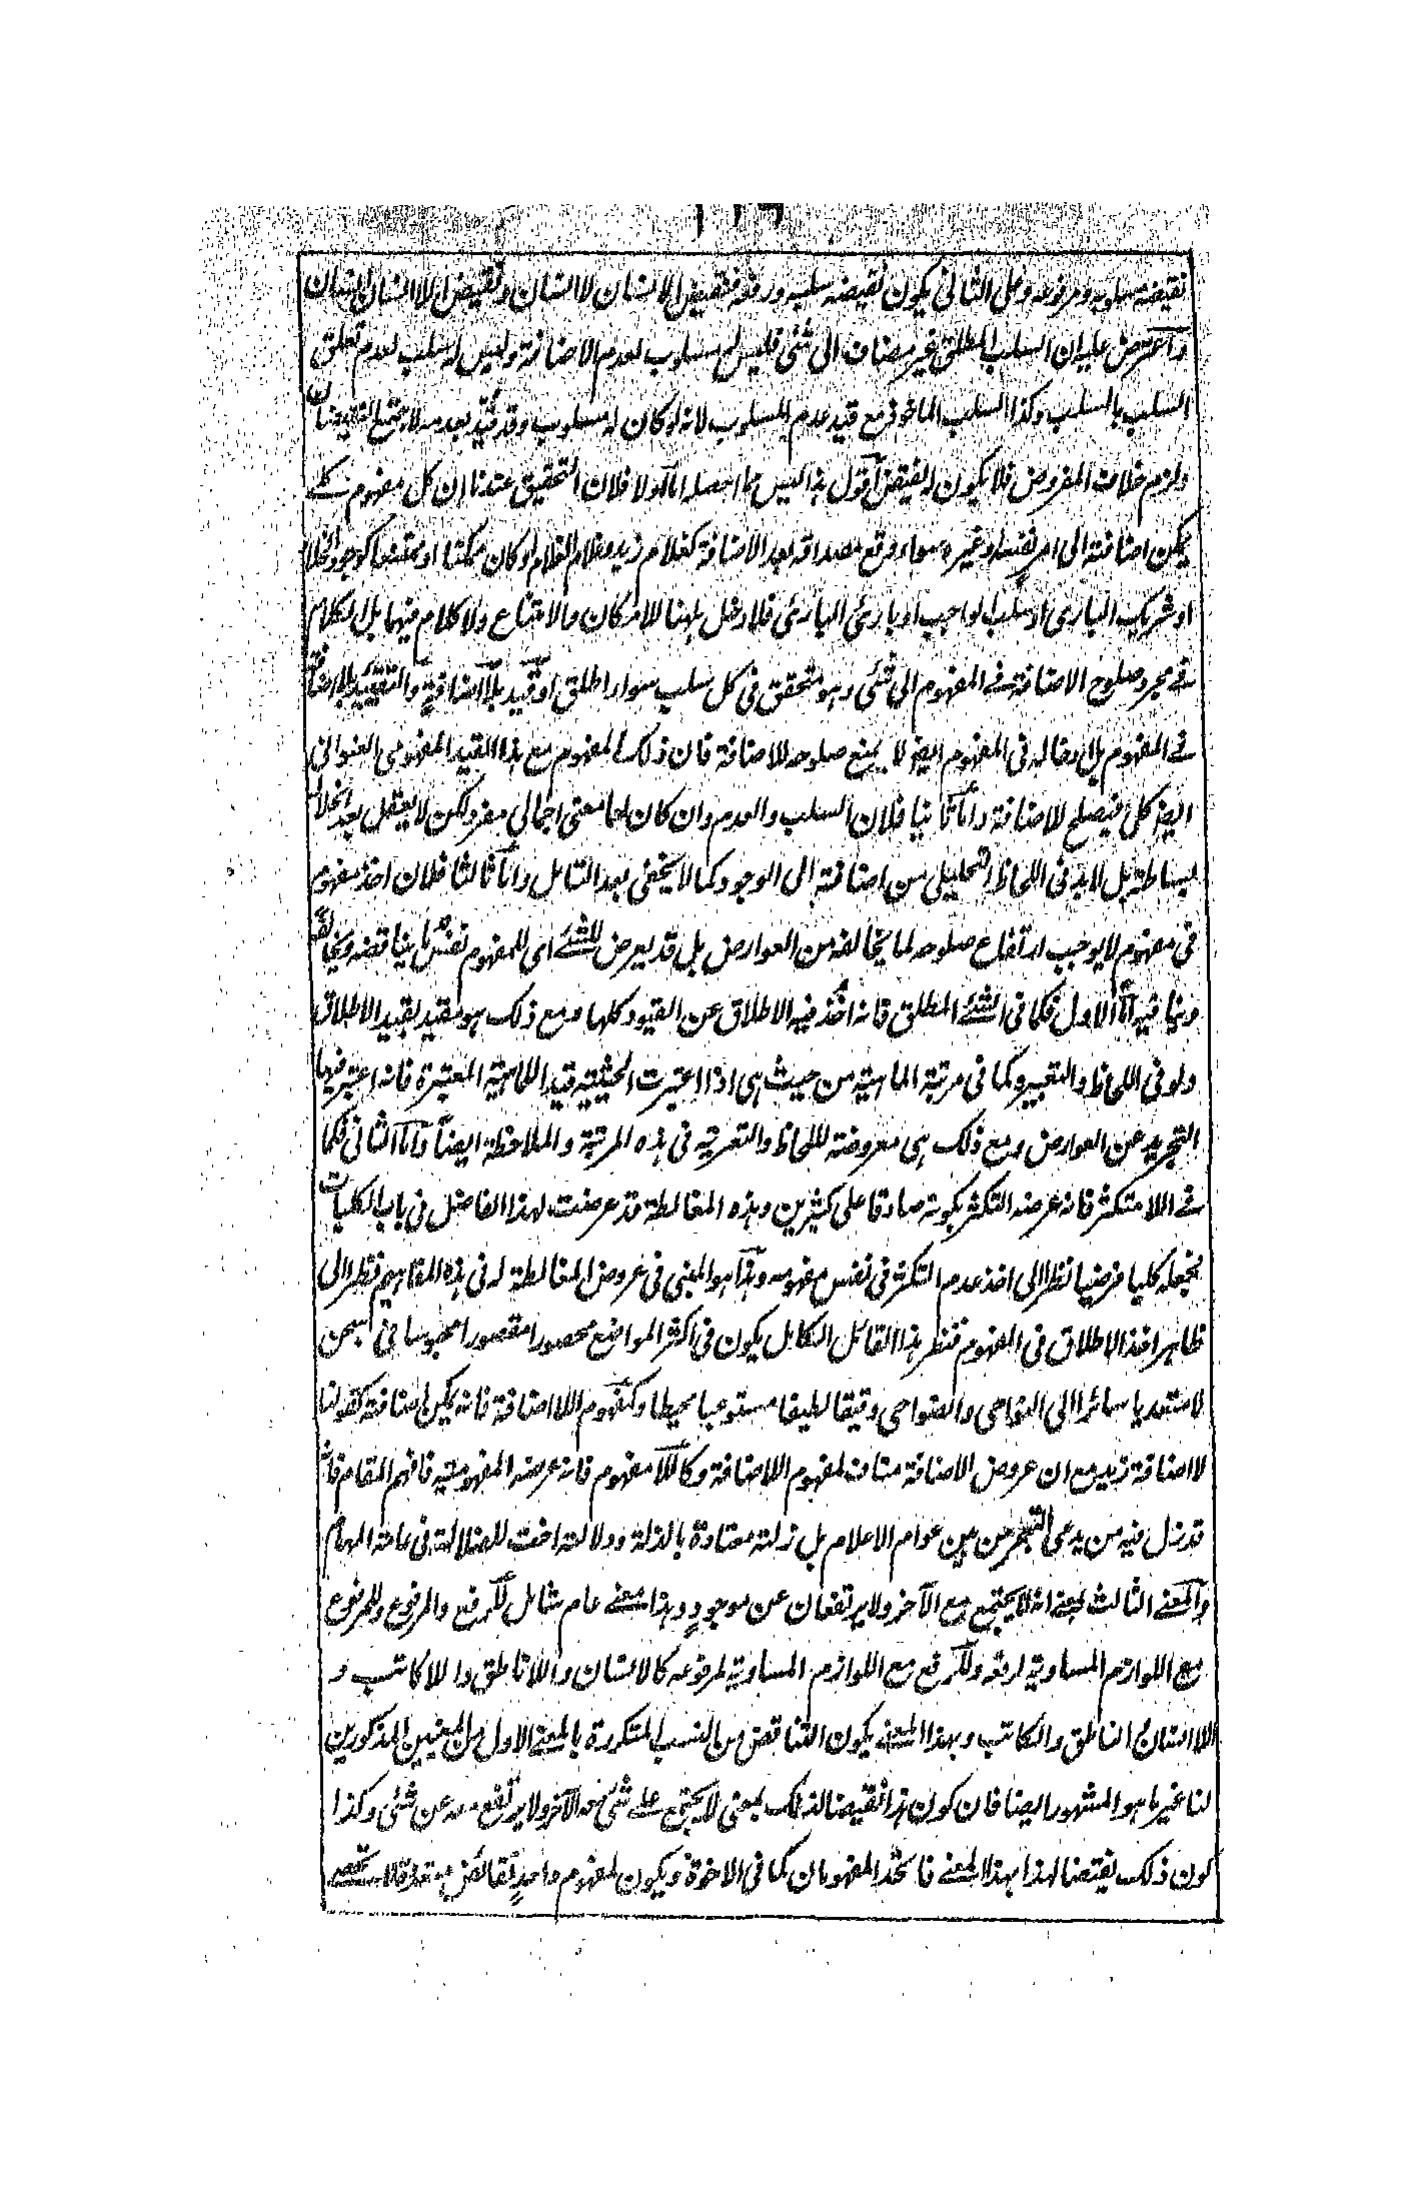 نقيضه مسلوبه ومرفوعه وعلى الثانى يكون نقيضه سلبه ورفعه فنقيض الانسان لا انسان ونقيض اللا انسان
واعترض عليه ان السلب المطلق غير مضاف الى شئ فليس له مسلوب لعدم الاضافة وليس له سلب لعدم تعلق
السلب بالسلب وكذا السلب الماخوذ مع قيد عدم المسلوب لانه لو كان له مسلوب وقد قيد بعدمه لاجتمع النقيضان
ولزم خلاف المفروض فلا يكون له نقيض اقول هذا ليس مما احصله اما اولا فلان التحقيق عندنا ان كل مفهوم كلے
يمكن اضافته الى امر نفسه او غيره سواء وقع مصداقه بعد الاضافة كغلام زيد وغلام الغلام او كان ممكنا او ممتنعا كوجود الخلا
او شريك البارى او سلب الواجب او بارئ البارئ فلا دخل ههنا للامكان والامتناع ولا كلام فيهما بل الكلام
فے مجرد صلوح الاضافة فے المفهوم الى شئ وهو متحقق فى كل سلب سواء اطلق او قيد بلا اضافة والتقييد بلا اضافة
فے المفهوم بل ادخاله فى المفهوم ايضا لا يمنع صلوحه للاضافة فان ذلك المفهوم مع هذا القيد المفهومى العنوانى
ايضا كلى فيصلح للاضافة واما ثانيا فلان السلب والعدم وان كان لهما معنى اجمالى مفرد لكن لا يعقل بعد انحلاله
بساطته بل لا بد فى اللحاظ التحليلى من اضافته الى الوجود كما لا يخفى بعد التامل واما ثالثا فلان اخذ مفهوم
فى مفهوم لا يوجب ارتفاع صلوحه لما يخالفه من العوارض بل قد يعرض للشئ اى للمفهوم نفس ما يناقضه ويخالفه
وينافيه اما الاول فكما فى الشئ المطلق فانه اخذ فيه الاطلاق عن القيود كلها ومع ذلك هو مقيد بقيد الاطلاق
ولو فى اللحاظ والتعبير وكما فى مرتبة الماهية من حيث هى اذا اعتبرت الحيثية قيدا للماهية المعتبرة فانه اعتبر فيها
التجريد عن العوارض ومع ذلك هى معروضة للحاظ والتعرية فى هذه المرتبة والملاحظة ايضا واما الثانى فكما
فے اللا متكثر فانه عرضه التكثر بكونه صادقا على كثيرين وهذه المغالطة قد عرضت لهذا الفاضل فى باب الكليات
فجعله كليا فرضيا نظرا الى اخذ عدم التكثر فى نفس مفهومه وهذا هو المبنى فى عروض المغالطة له فى هذه المفاهيم فنظر الى
ظاهر اخذ الاطلاق فى المفهوم فنظر هذا القائل الكامل يكون فى اكثر المواضع محصورا مقصورا محبوسا فى السجن
لا متعديا سائرا الى النواحى والضواحى دقيقا لطيفا مستوعبا محيطا وكمفهوم اللا اضافة فانه يمكن اضافته كقولنا
لا اضافة زيد مع ان عروض الاضافة مناف لمفهوم اللا اضافة وكاللا مفهوم فانه عرضه المفهومية فافهم المقام فانه
قد زل فيه من يدعى التبحر من بين عوام الاعلام بل زلته معتادة بالذلة ودلالته اخت للضلالة فى عامة المهام
والمعنے الثالث بمعنے انه لا يجتمع مع الآخر ولا يرتفعان عن موجود وهذا معنے عام شامل للرفع والمرفوع وللمرفوع
مع اللوازم المساوية لرفعه وللرفع مع اللوازم المساوية لمرفوعه كالانسان واللا ناطق واللا كاتب و
اللا انسان مع الناطق والكاتب وبهذا المعنے يكون التناقض من النسب المتكررة بالمعنے الاول من المعنيين المذكورين
لنا غير ما هو المشهور ايضا فان كون هذا نقيضا لذلك بمعنى لا يجتمع على شئ مع الآخر ولا يرتفع معه عن شئ وكذا
كون ذلك نقيضا لهذا بهذا المعنے فاتحد المفهومان كما فى الاخوة ويكون لمفهوم واحد نقائض متعددة